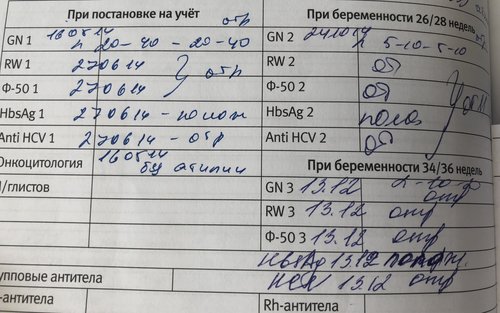 При постановке на учёт
отр
GN 1 160514 л 20-40-20-40
RW 1 270614 отр
Ф-50 1 270614
HbsAg 1 270614 - полож
Anti HCV 1 270614 - отр
Онкоцитология 160514 без атипии
/глистов
упповые антитела
-антитела
При беременности 26/28 недель
GN 2 241014 5-10-5-10
RW 2 от
Ф-50 2 от
HbsAg 2 полож
Anti HCV 2 от
При беременности 34/36 недель
GN 3 13.12
отр
RW 3 13.12 отр
Ф-50 3 13.12 отр
HbsAg 13.12 полож.
HCV 13.12 отр
Rh-антитела